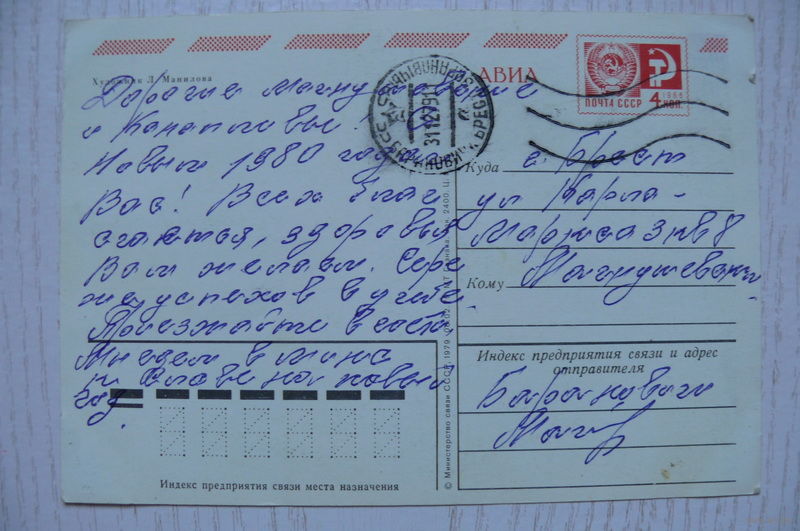 Художник Л. Манилова
АВИА
ПОЧТА СССР
4 коп.
1966
31 12 79
Дорогие
и
Новым 1980 годом
Вас! Всех благ
счастья, здоровья
Вам желаем. Сере
же успехов в учебе.
Приезжайте в гости.
Мы едем в Минс
к Славе на новый
год.
Куда г. Брест
ул Карла-
Маркса 3 кв 8
Кому
Индекс предприятия связи и адрес
отправителя
Барановичи
Индекс предприятия связи места назначения
© Министерство связи СССР, 1979